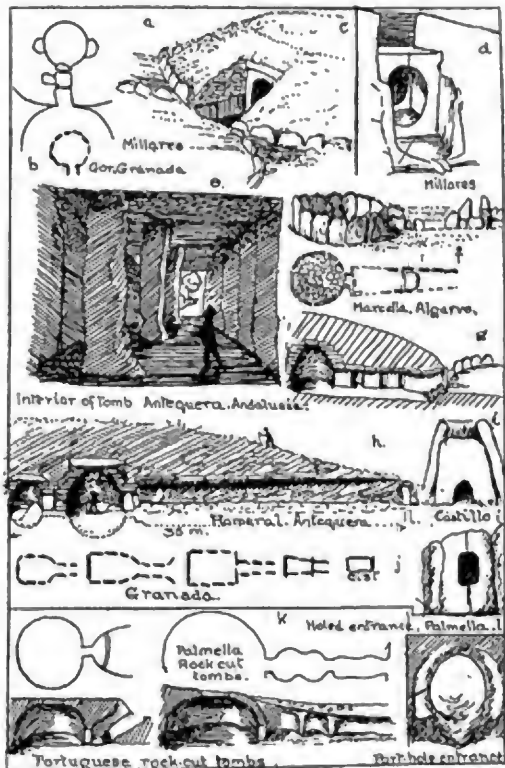 a
c
d
b
Gor, Granada
Millares
Millares
e.
f
Marcella, Algarve.
g
Interior of Tomb Antequera, Andalusia.
h.
i
Romeral. Antequera
Castillo
38 m.
j
cist
Granada.
k
Holed entrance, Palmella. l
Palmella
Rock cut
tombs.
Portuguese rock-cut tombs.
Porthole entrance